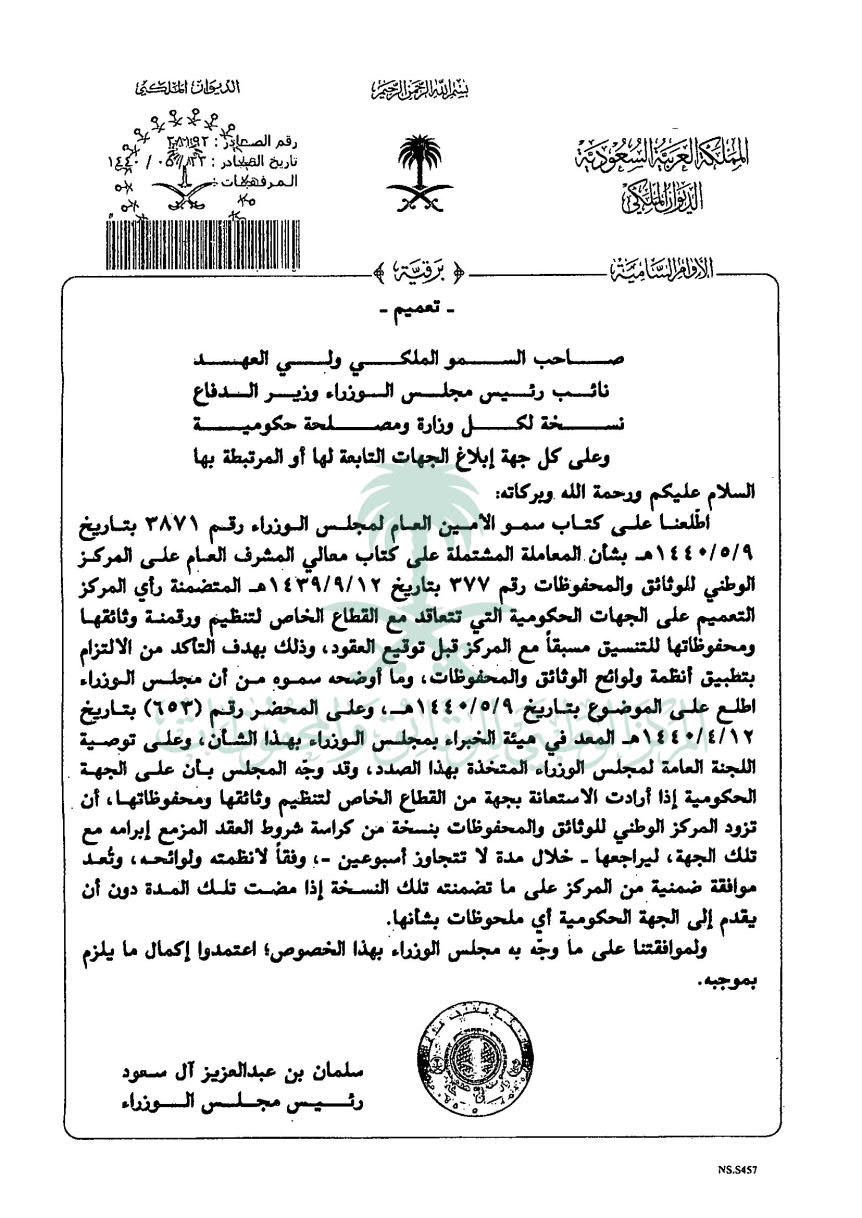 بسم الله الرحمن الرحيم
المملكة العربية السعودية
الديوان الملكي
الديوان الملكي
رقم الصادر :
تاريخ الصادر : ١٤٤٠/٠٥/٢٣
المرفقات :
الأوامر السامية
﴿ برقية ﴾
ـ تعميم ـ
صاحب السمو الملكي ولي العهد
نائب رئيس مجلس الوزراء وزير الدفاع
نسخة لكل وزارة ومصلحة حكومية
وعلى كل جهة إبلاغ الجهات التابعة لها أو المرتبطة بها
السلام عليكم ورحمة الله وبركاته:
اطّلعنا على كتاب سمو الأمين العام لمجلس الوزراء رقم ٣٨٧١ بتاريخ
١٤٤٠/٥/٩هـ بشأن المعاملة المشتملة على كتاب معالي المشرف العام على المركز
الوطني للوثائق والمحفوظات رقم ٣٧٧ بتاريخ ١٤٣٩/٩/١٢هـ المتضمنة رأي المركز
التعميم على الجهات الحكومية التي تتعاقد مع القطاع الخاص لتنظيم ورقمنة وثائقها
ومحفوظاتها للتنسيق مسبقاً مع المركز قبل توقيع العقود، وذلك بهدف التأكد من الالتزام
بتطبيق أنظمة ولوائح الوثائق والمحفوظات، وما أوضحه سموه من أن مجلس الوزراء
اطلع على الموضوع بتاريخ ١٤٤٠/٥/٩هـ، وعلى المحضر رقم (٦٥٣) بتاريخ
١٤٤٠/٤/١٢هـ المعد في هيئة الخبراء بمجلس الوزراء بهذا الشأن، وعلى توصية
اللجنة العامة لمجلس الوزراء المتخذة بهذا الصدد، وقد وجّه المجلس بأن على الجهة
الحكومية إذا أرادت الاستعانة بجهة من القطاع الخاص لتنظيم وثائقها ومحفوظاتها، أن
تزود المركز الوطني للوثائق والمحفوظات بنسخة من كراسة شروط العقد المزمع إبرامه مع
تلك الجهة، ليراجعها ـ خلال مدة لا تتجاوز أسبوعين ـ، وفقاً لأنظمته ولوائحه، وتُعد
موافقة ضمنية من المركز على ما تضمنته تلك النسخة إذا مضت تلك المدة دون أن
يقدم إلى الجهة الحكومية أي ملحوظات بشأنها.
ولموافقتنا على ما وجّه به مجلس الوزراء بهذا الخصوص؛ اعتمدوا إكمال ما يلزم
بموجبه.
سلمان بن عبدالعزيز آل سعود
رئيس مجلس الوزراء
المركز الوطني للوثائق والمحفوظات
NS.S457